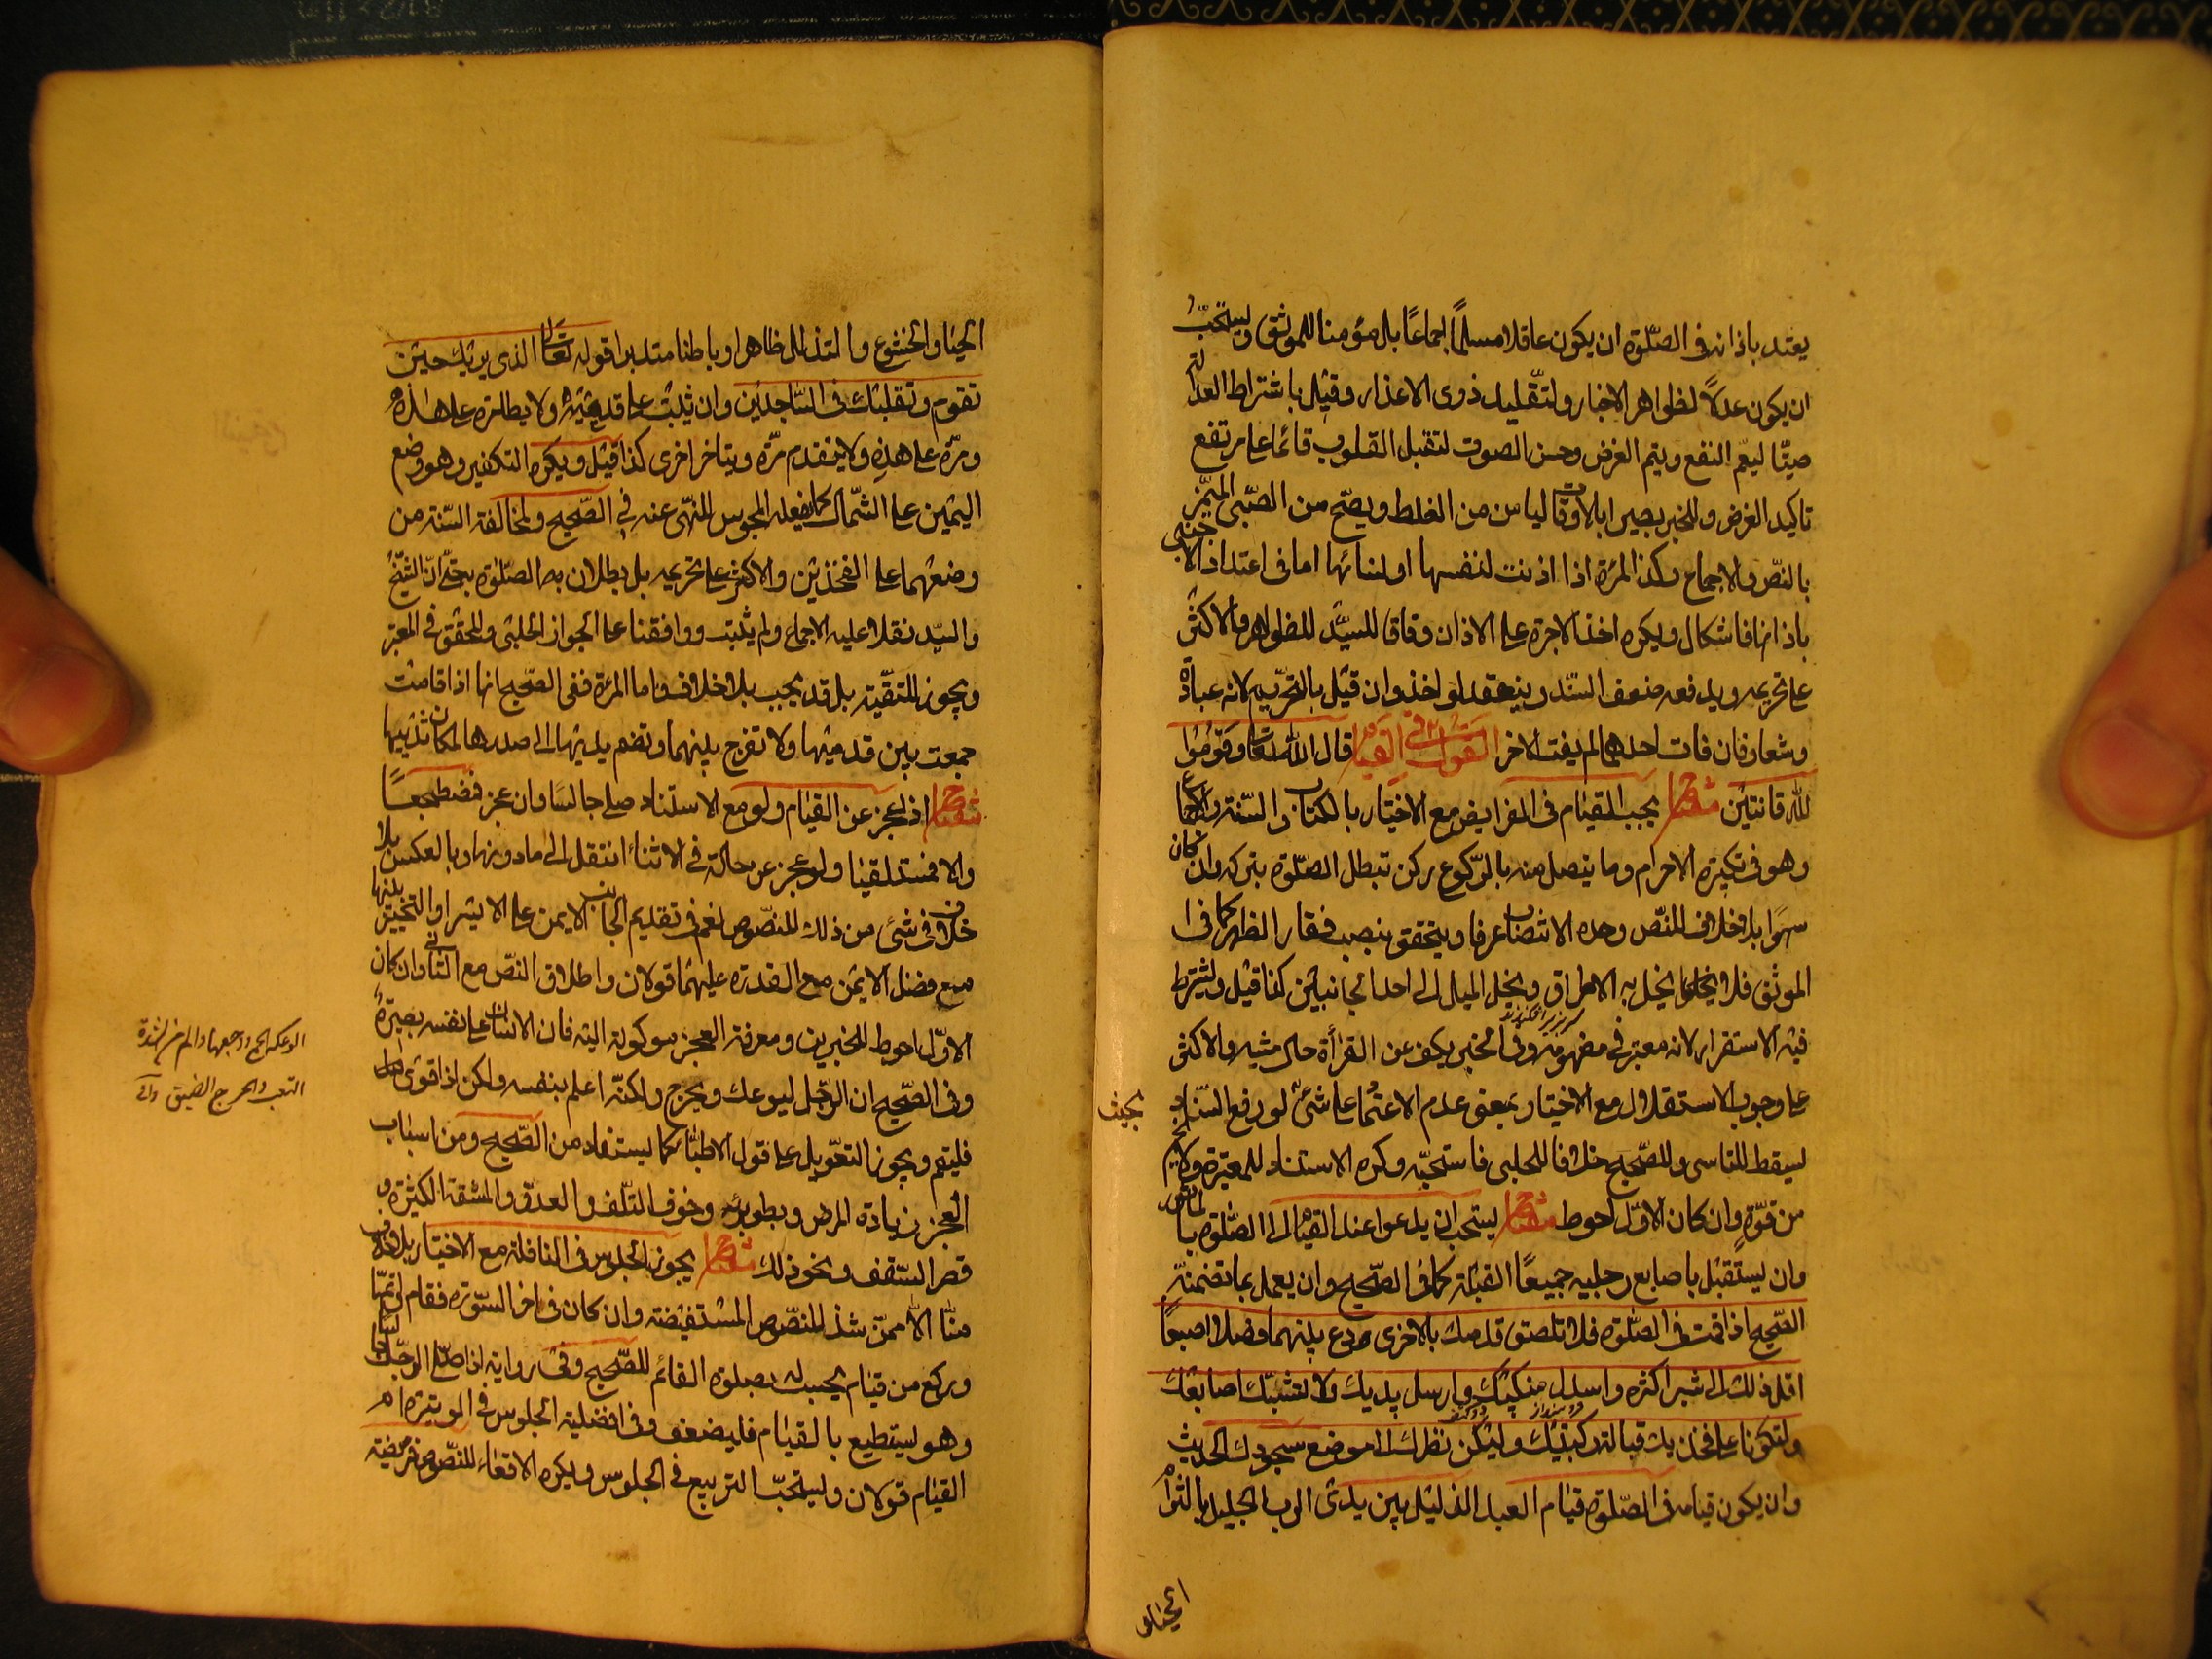 يعتد باذانه فى الصّلوة ان يكون عاقلا مسلماً اجماعًا بل مؤمنا للموثق ويستحبّ
ان يكون عدلاً لظواهر الاخبار ولتقليد ذوى الاعذار وقيل باشتراط العدالة
صيّتا ليعم النفع ويتم الغرض وحسن الصوت لتقبل القلوب قائما على مرتفع
تاكيد الغرض وللخبر بصيرا بالاوقات ليامن من الغلط ويصّح من الصّبى المميّز
بالنصّ والاجماع وكذا المرءة اذا اذنت لنفسها او لنسائها اما فى اعتداد الاجنبى
باذانها فاشكال ويكره اخذ الاجرة على الاذان وفاقا للسيّد للظواهر والاكثر
على تحريمه ويدفعه ضعف السّند وينعقد لو اخذ وان قيل بالتحرّيم لانه عبادة
وشعار فان فات احدهما لم يفت الاخر القول فى القيام قال الله تعا وقوموا
لله قانتين مفتاح يجب القيام فى الفرايض مع الاختيار بالكتاب والسّنة والاجماع
وهو فى تكبيرة الاحرام وما يتصل منه بالرّكوع ركن تبطل الصّلوة بتركه وان كان
سهوًا بلا خلاف للنصّ وحده الانتصاب عرفا ويتحقق بنصب فقار الظهر كما فى
الموثق فلا يخل به الاطراق ويخل الميل الى احد الجانبين كذا قيل ويشترط
فيه الاستقرار لانه معتبر فى مفهومه وفى الخبر يكف عن القرأة حال مشيه والاكثر
على وجوب الاستقلال مع الاختيار بمعنى عدم الاعتماد على شئ لو رفع السّناد
بحيث
لسقط للتاسى وللصّحيح خلافا للحلبى فاستحبّه وكره الاستناد للمعتبرة ولا يخ
من قوّة وان كان الاوّل احوط مفتاح يستحب ان يدعو عند القيام الى الصّلوة بالماثور
وان يستقبل باصابع رجليه جميعًا القبلة كما فى الصّحيح وان يعمل بما تضمنه
الصّحيح اذا قمت فى الصّلوة فلا تلصق قدمك بالاخرى ودع بينهما فصلا اصبعًا
اقل ذلك الى شبر اكثره واسدل منكبيك وارسل يديك ولا تشبك اصابعك
ولتكونا على فخذيك قبالة ركبتيك وليكن نظرك الى موضع سجودك الحديث
وان يكون قيامه فى الصّلوة قيام العبد الذليل بين يدى الرب الجليل بالتوا
الحياء و
الحيا والخشوع والتذلل ظاهرا وباطنا متدبرا قوله تعالى الذى يريك حين
تقوم وتقلبك فى السّاجدين وان يثبت على قدميه ولا يطا مرة على هذه
ومرّة على هذه ولا يتقدم مرّة ويتاخر اخرى كذا قيل ويكره التكفير وهو وضع
اليمين على الشّمال كما يفعله المجوس للنهى عنه فى الصّحيح ولمخالفة السّنة من
وضعهما على الفخذين والاكثر على تحريمه بل بطلان به الصّلوة بحجّة انّ الشيّخ
والسيّد نقلا عليه الاجماع ولم يثبت ووافقنا على الجواز الحلبى والمحقق فى المعتبر
ويجوز للتقّية بل قد يجب بلا خلاف واما المرءة ففى الصّحيح انها اذا قامت
جمعت بين قدميها ولا تفرج بينهما وتضم يديها الى صدرها لمكان ثدييها
مفتاح اذا عجز عن القيام ولو مع الاستناد صلى جالسا وان عجز فمضطجعًا
والا فمستلقيا ولو عجز عن حالة فى الاثناء انتقل الى ما دونها وبالعكس بلا
خلاف فى شئ من ذلك للنصّوص نعم فى تقديم الجانب الايمن على الايسر او التخيير بينهما
مع فضل الايمن مع القدرة عليهما قولان واطلاق النصّ مع الثانى وان كان
الاوّل احوط للخبرين ومعرفة العجز موكولة اليه فان الانسان على نفسه بصيرة
وفى الصّحيح ان الرّجل ليوعك ويحرج ولكنّه اعلم بنفسه ولكن اذا قوى
فليقم ويجوز التعويل على قول الاطبّاء كما يستفاد من الصّحيح ومن اسباب
العجز زيادة المرض وبطو برئه وخوف التّلف والعدوّ والمشقة الكثيرة و
قصر السّقف ونحو ذلك مفتاح يجوز الجلوس فى النافلة مع الاختيار بلا خلاف
منّا الّا ممّن شذ للنصّوص المستفيضة وان كان فى اخر السّورة فقام فاتمّها
وركع من قيام يحسب له بصلوة القائم للصّحيح وفى رواية اذا صلّى الرجل جالسا
وهو يستطيع بالقيام فليضعف وفى افضلية الجلوس فى الوتيرة ام
القيام قولان ويستحبّ التربيع فى الجلوس ويكره الاقعاء للنصّوص
الوعك الحمى ووجعها والم من شدة
التعب والحرج الضيق